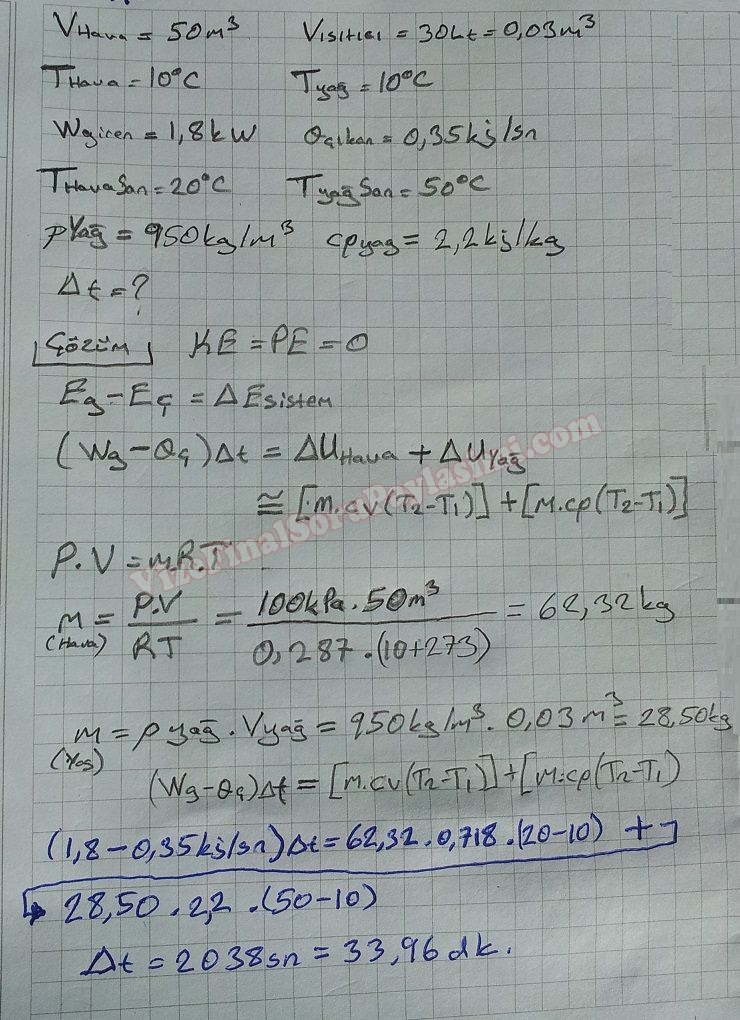 VHava = 50m³ Vısıtıcı = 30Lt = 0,03m³
THava = 10°C Tyağ = 10°C
Wgiren = 1,8kW Qçıkan = 0,35kj/sn
THavaSon = 20°C TyağSon = 50°C
ρYağ = 950kg/m³ cpyag = 2,2kj/kg
Δt = ?
Çözüm KE = PE = 0
Eg - Eç = ΔEsistem
(Wg - Qç)Δt = ΔUHava + ΔUYağ
≅ [m.cv(T2-T1)] + [m.cp(T2-T1)]
P.V = m.R.T
m = P.V / RT = 100kPa.50m³ / 0,287.(10+273) = 62,32kg
(Hava)
m = ρyağ.Vyağ = 950kg/m³.0,03m³ = 28,50kg
(Yağ)
(Wg-Qç)Δt = [m.cv(T2-T1)]+[m.cp(T2-T1)
(1,8-0,35kj/sn)Δt = 62,32.0,718.(20-10) +
28,50.2,2.(50-10)
Δt = 2038sn = 33,96 dk.
VizeFinalSoruPaylasimi.com